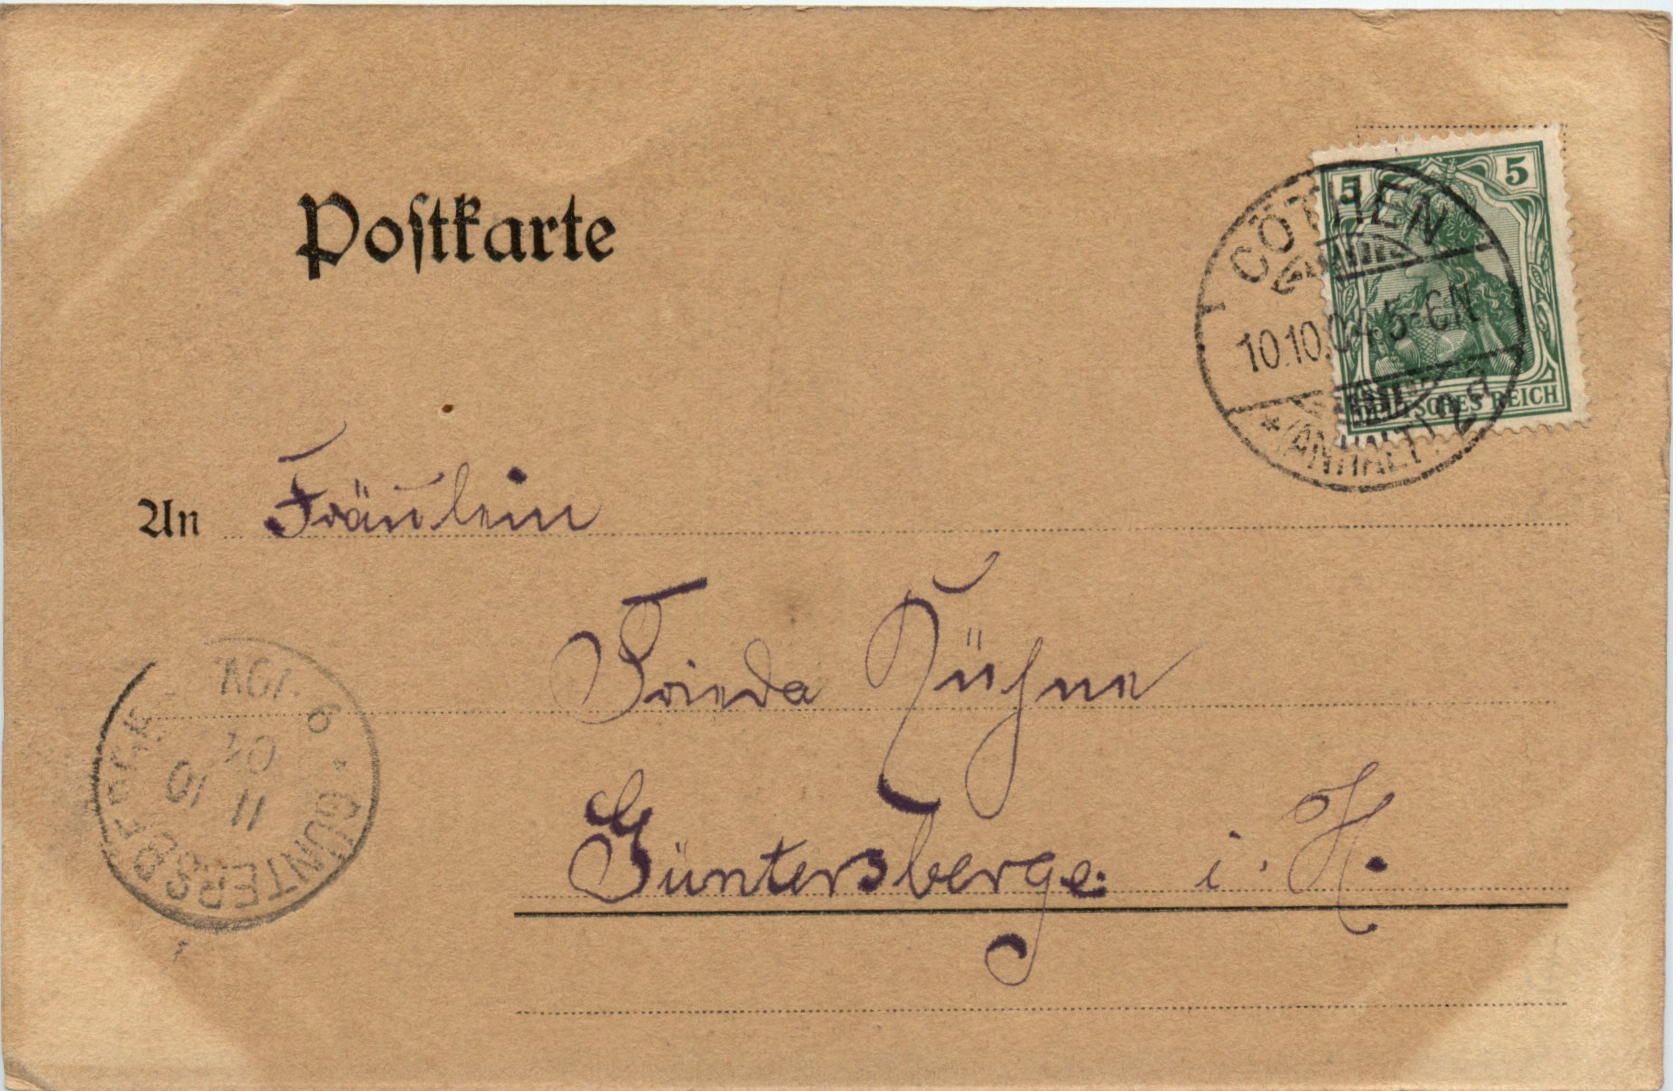 Postkarte
5 5
DEUTSCHES REICH
CÖTHEN
10.10.04. 5-6N
* (ANHALT)
An Fräulein
Frieda Kühne
Güntersberge i. H.
GÜNTERSBERGE
11 10
04